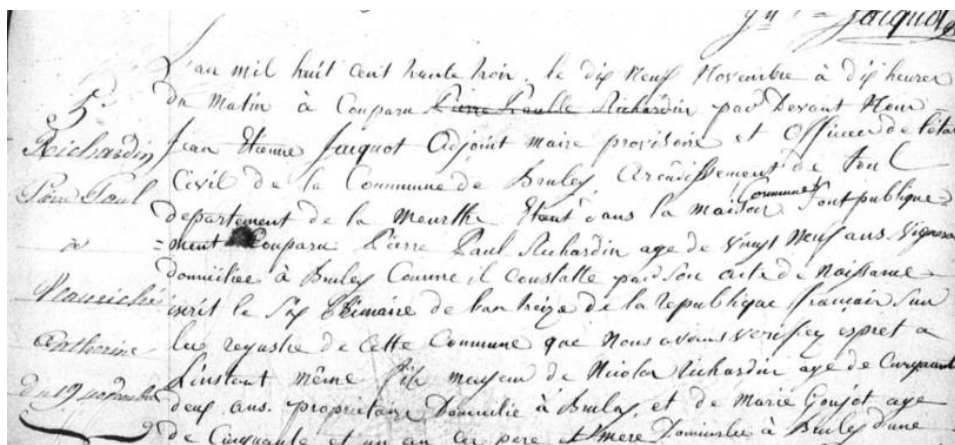 Jacquot
L'an mil huit cent trente trois. le dix Neuf Novembre à dix heures
du Matin à Comparu Pierre Paulle Richardin par Devant Nous
Jean Etienne Jacquot Adjoint maire provisoire et Officier de l'état
Civil de la Commune de Bruley, Arondissement de Toul
departement de la Meurthe Etant dans la maison Commune
publique
ment Comparu Pierre Paul Richardin age de vingt Neuf ans Vigneron
domiciliee à Bruley Comme il constatte par son acte de Naissance
le Six de l'an treize de la republique français sur
les regustre de Cette Commune que Nous avons verifiez a
L'instant même fils majeur de Nicolas Richardin age de Cinquante
deux ans. propriétaire Domicilié à Bruley, et de Marie Goujot age
de Cinquante et un an Ces pere et Mere Domiciliée à Bruley d'une
5.
Richardin
Paul
a
Catherine
du 19 novembre